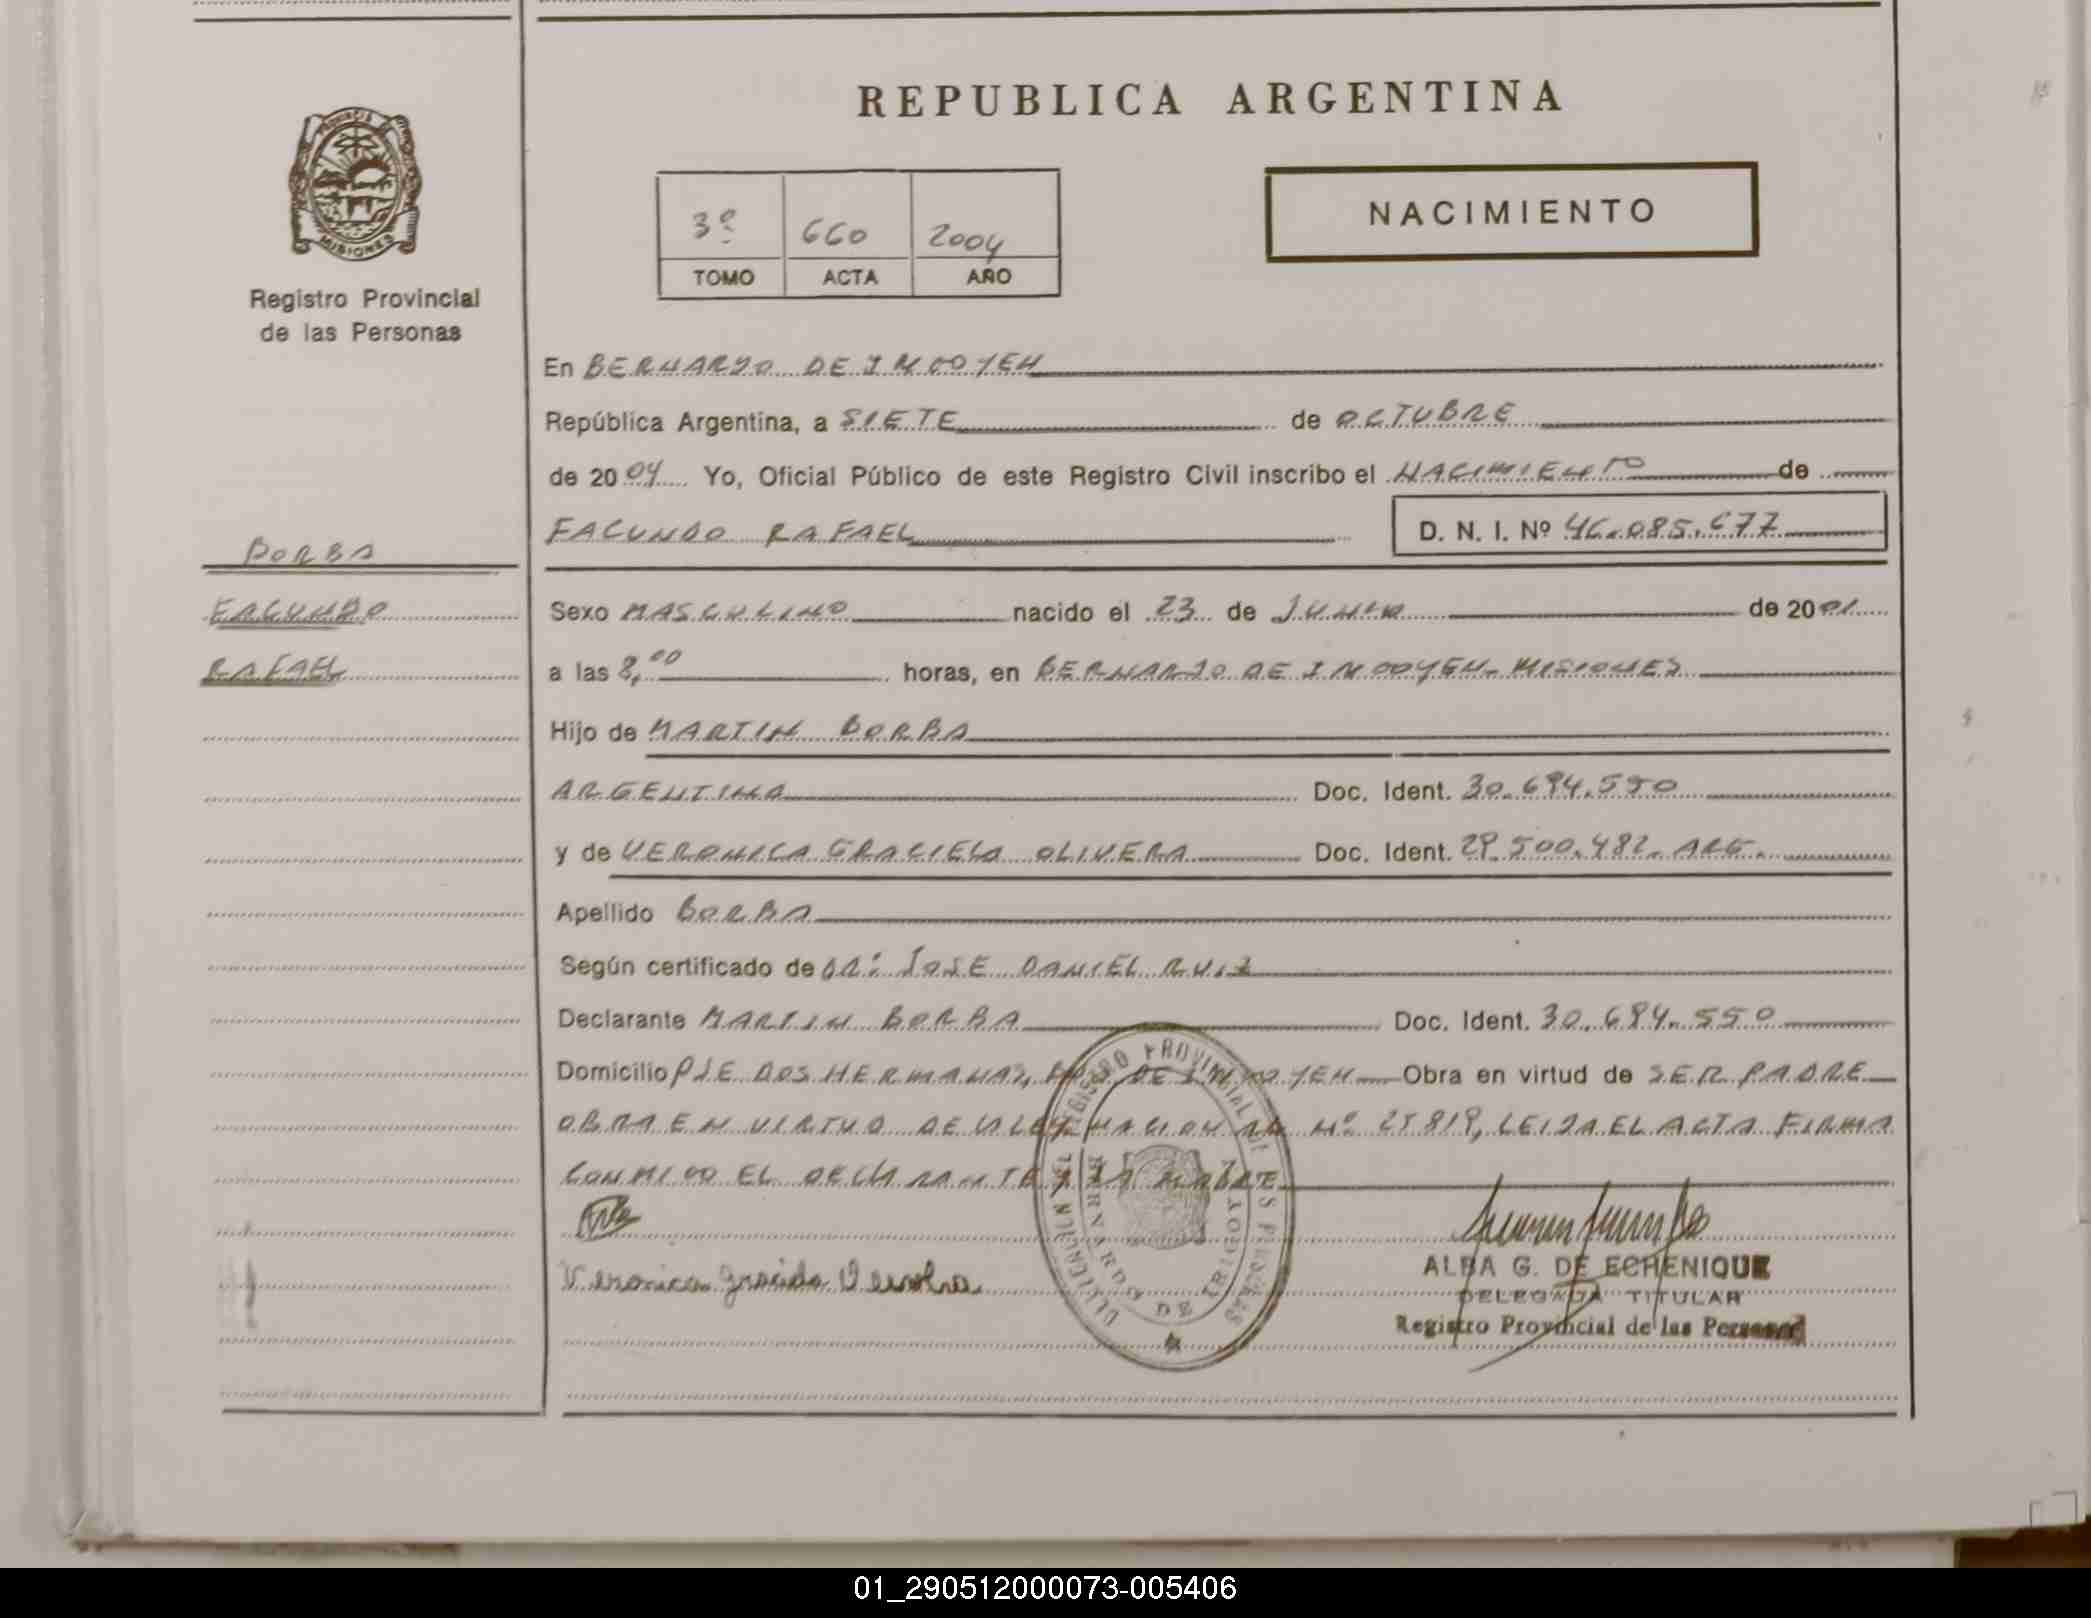 REPUBLICA ARGENTINA
PROVINCIA DE MISIONES
Registro Provincial
de las Personas
3º 660 2004
TOMO ACTA AÑO
NACIMIENTO
En BERNARDO DE IRIGOYEN
República Argentina, a SIETE de OCTUBRE
de 2004 Yo, Oficial Público de este Registro Civil inscribo el NACIMIENTO de
FACUNDO RAFAEL D. N. I. Nº 46.085.677
BORBA
FACUNDO
RAFAEL
Sexo MASCULINO nacido el 23 de JUNIO de 2001
a las 8,00 horas, en BERNARDO DE IRIGOYEN - MISIONES
Hijo de MARTIN BORBA
ARGENTINA Doc. Ident. 30.694.550
y de VERONICA GRACIELA OLIVERA Doc. Ident. 29.500.482 - ARG.
Apellido BORBA
Según certificado de DR: JOSE DANIEL RUIZ
Declarante MARTIN BORBA Doc. Ident. 30.694.550
Domicilio PJE DOS HERMANAS, BDO DE IRIGOYEN Obra en virtud de SER PADRE
OBRA EN VIRTUD DE LA LEY NACIONAL Nº 25819, LEIDA EL ACTA FIRMA
CONMIGO EL DECLARANTE Y LA MADRE
Veronica Graciela
DELEGACION DEL REGISTRO PROVINCIAL DE LAS PERSONAS
BERNARDO DE IRIGOYEN
ALBA G. DE ECHENIQUE
DELEGADA TITULAR
Registro Provincial de las Personas
01_290512000073-005406